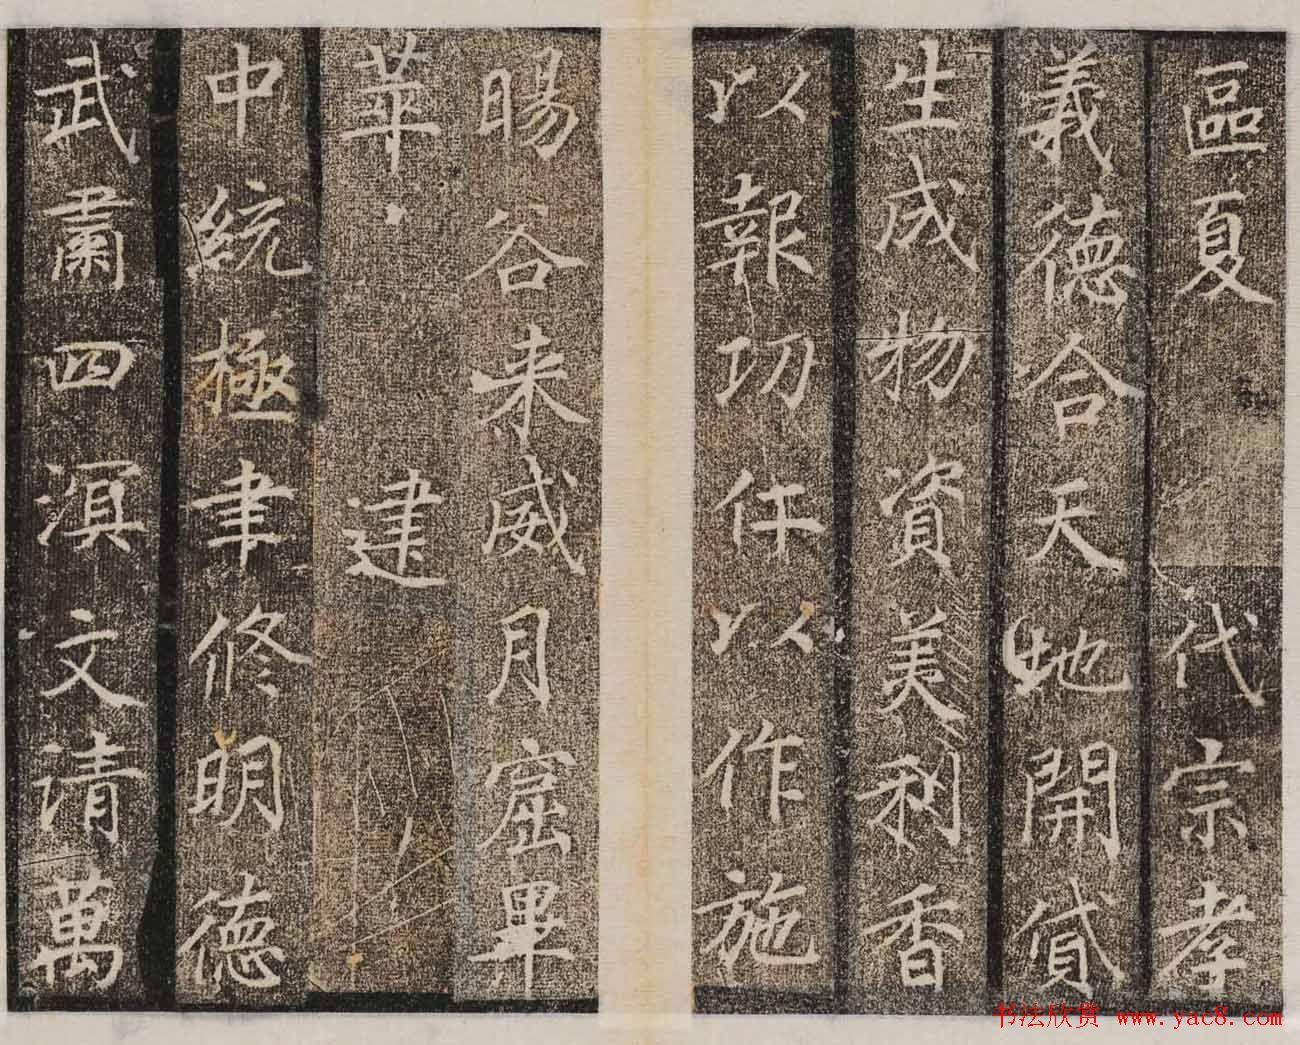 區夏 代宗孝
義德合天地開貸
生成物資美利香
以報功仵以作施
暘谷来威月窟畢
華 建
中統極聿修明德
武肅四溟文清萬
书法欣赏 www.yac8.com